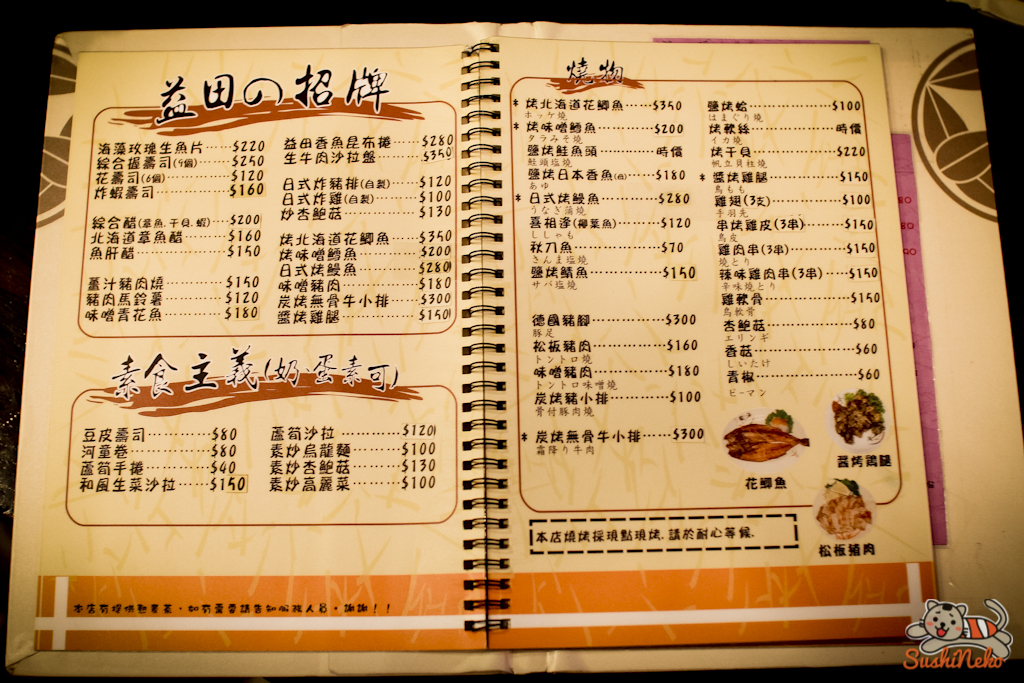 益田の招牌
海藻玫瑰生魚片……$220
綜合握壽司(9個)……$250
花壽司(6個)……$120
炸蝦壽司……$160
綜合醋(章魚.干貝.蝦)……$200
北海道章魚醋……$160
魚肝醋……$150
薑汁豬肉燒……$150
豬肉馬鈴薯……$120
味噌青花魚……$180
益田香魚昆布捲……$280
生牛肉沙拉盤……$350
日式炸豬排(自製)……$120
日式炸雞(自製)……$100
炒杏鮑菇……$130
烤北海道花鯽魚……$350
烤味噌鱈魚……$200
日式烤鰻魚……$280
味噌豬肉……$180
炭烤無骨牛小排……$300
醬烤雞腿……$150
素食主義(奶蛋素可)
豆皮壽司……$80
河童卷……$80
蘆筍手捲……$40
和風生菜沙拉……$150
蘆筍沙拉……$120
素炒烏龍麵……$100
素炒杏鮑菇……$130
素炒高麗菜……$100
燒物
* 烤北海道花鯽魚……$350
ホッケ燒
* 烤味噌鱈魚……$200
タラみそ燒
鹽烤鮭魚頭……時價
鮭頭塩燒
鹽烤日本香魚……$180
あゆ
* 日式烤鰻魚……$280
うなぎ蒲燒
喜相逢(柳葉魚)……$120
ししゃも
秋刀魚……$70
さんま塩燒
鹽烤鯖魚……$150
サバ塩燒
德國豬腳……$300
豚足
松板豬肉……$160
トントロ燒
味噌豬肉……$180
トントロ味噌燒
炭烤豬小排……$100
骨付豚肉燒
* 炭烤無骨牛小排……$300
霜降り牛肉
鹽烤蛤……$100
はまぐり燒
烤軟絲……時價
イカ燒
烤干貝……$220
帆立貝柱燒
* 醬烤雞腿……$150
鳥もも
雞翅(3支)……$100
手羽先
串烤雞皮(3串)……$150
鳥皮
雞肉串(3串)……$150
燒とり
辣味雞肉串(3串)……$150
辛味燒とり
雞軟骨……$150
鳥軟骨
杏鮑菇……$80
エリンギ
香菇……$60
しいたけ
青椒……$60
ピーマン
花鯽魚
醬烤鶏腿
松板豬肉
本店燒烤採現點現烤.請於耐心等候.
本店有提供熱青茶，如有需要請告知服務人員，謝謝！！
SushiNeko